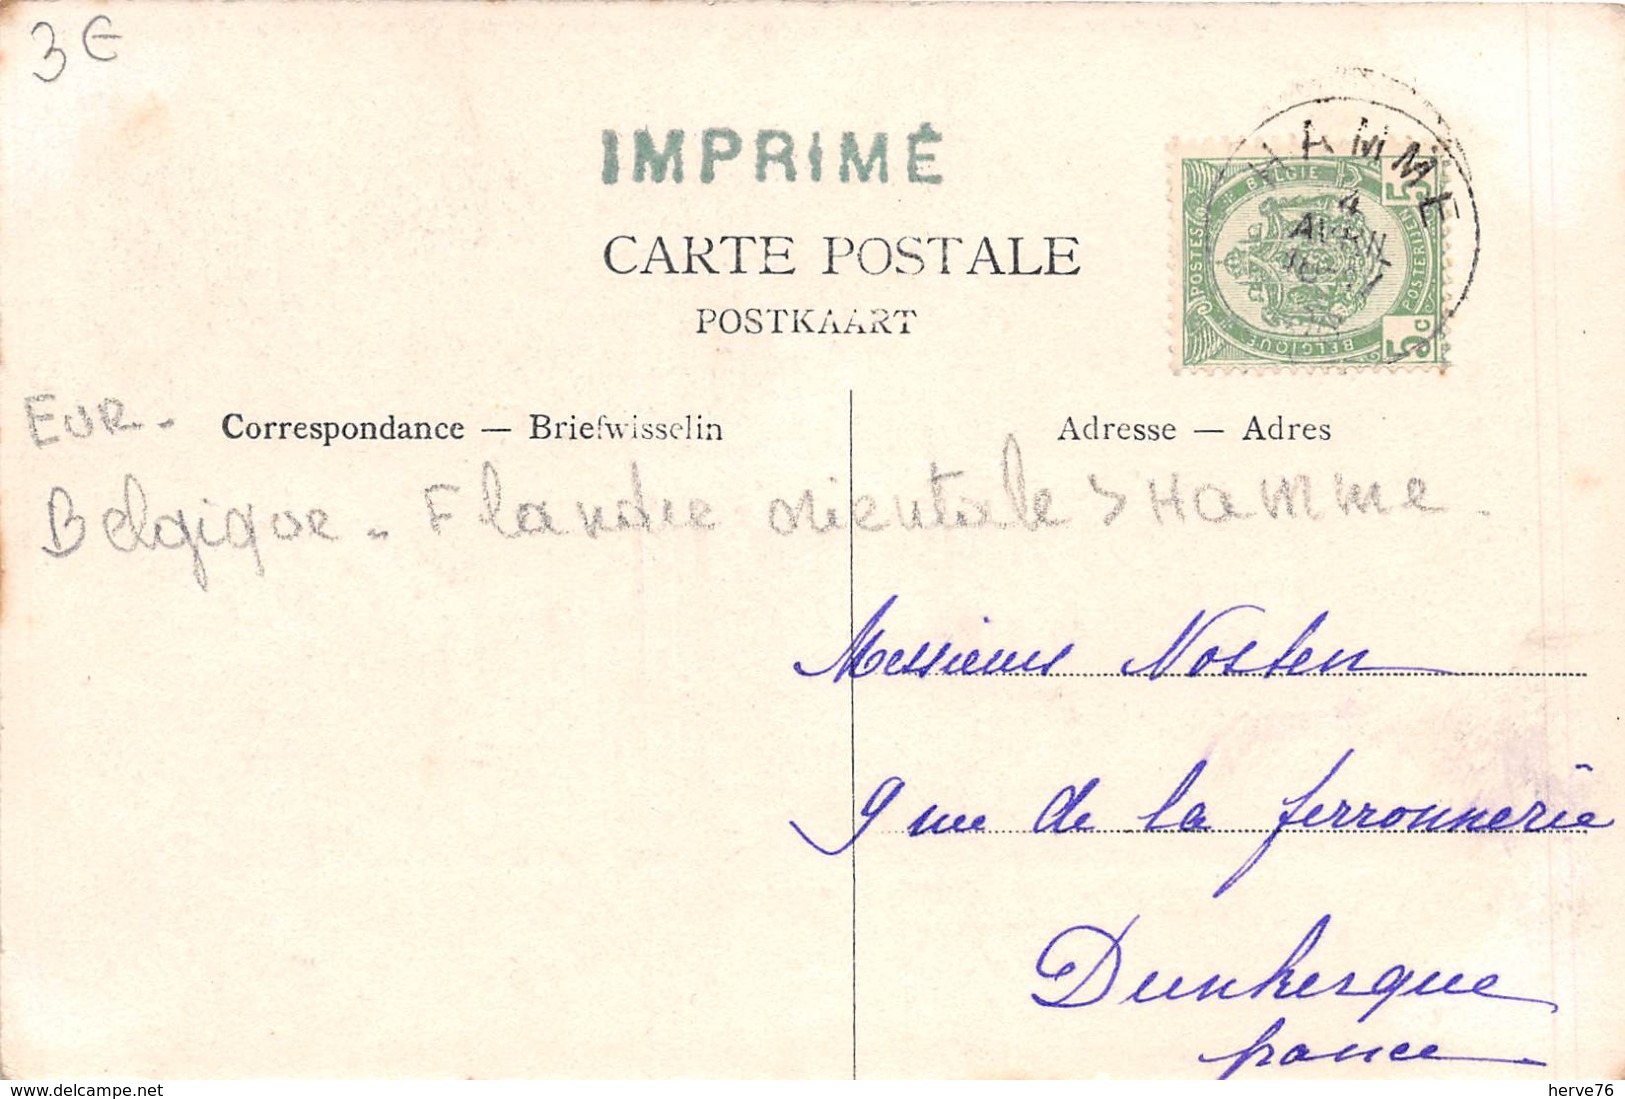 3€
IMPRIMÉ
CARTE POSTALE
POSTKAART
HAMME
4
AVRIL
BELGIE
POSTES
POSTERIJEN
BELGIQUE
5
5c
EUR.
Correspondance — Briefwisselin
Adresse — Adres
Belgique - Flandre orientale > Hamme.
Messieurs Nosten
9 rue de la ferronnerie
Dunkerque
france
delcampe.net
herve76